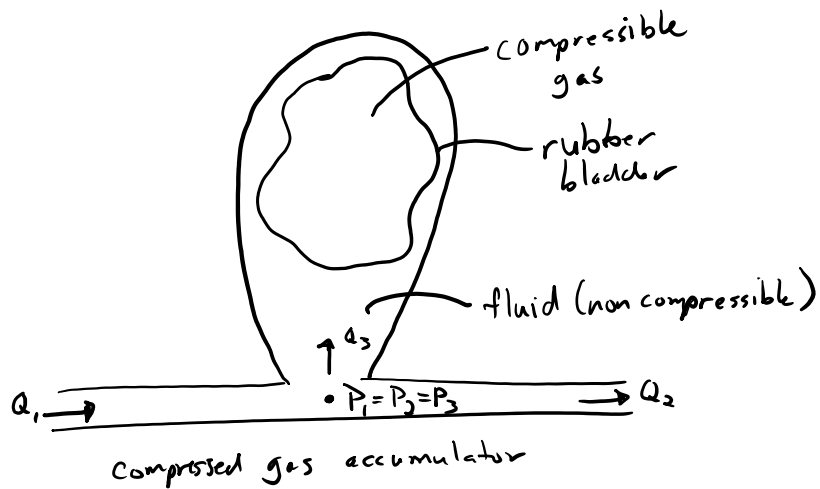 compressible
gas
rubber
bladder
fluid (non compressible)
Q3
Q1
P1 = P2 = P3
Q2
compressed gas accumulator